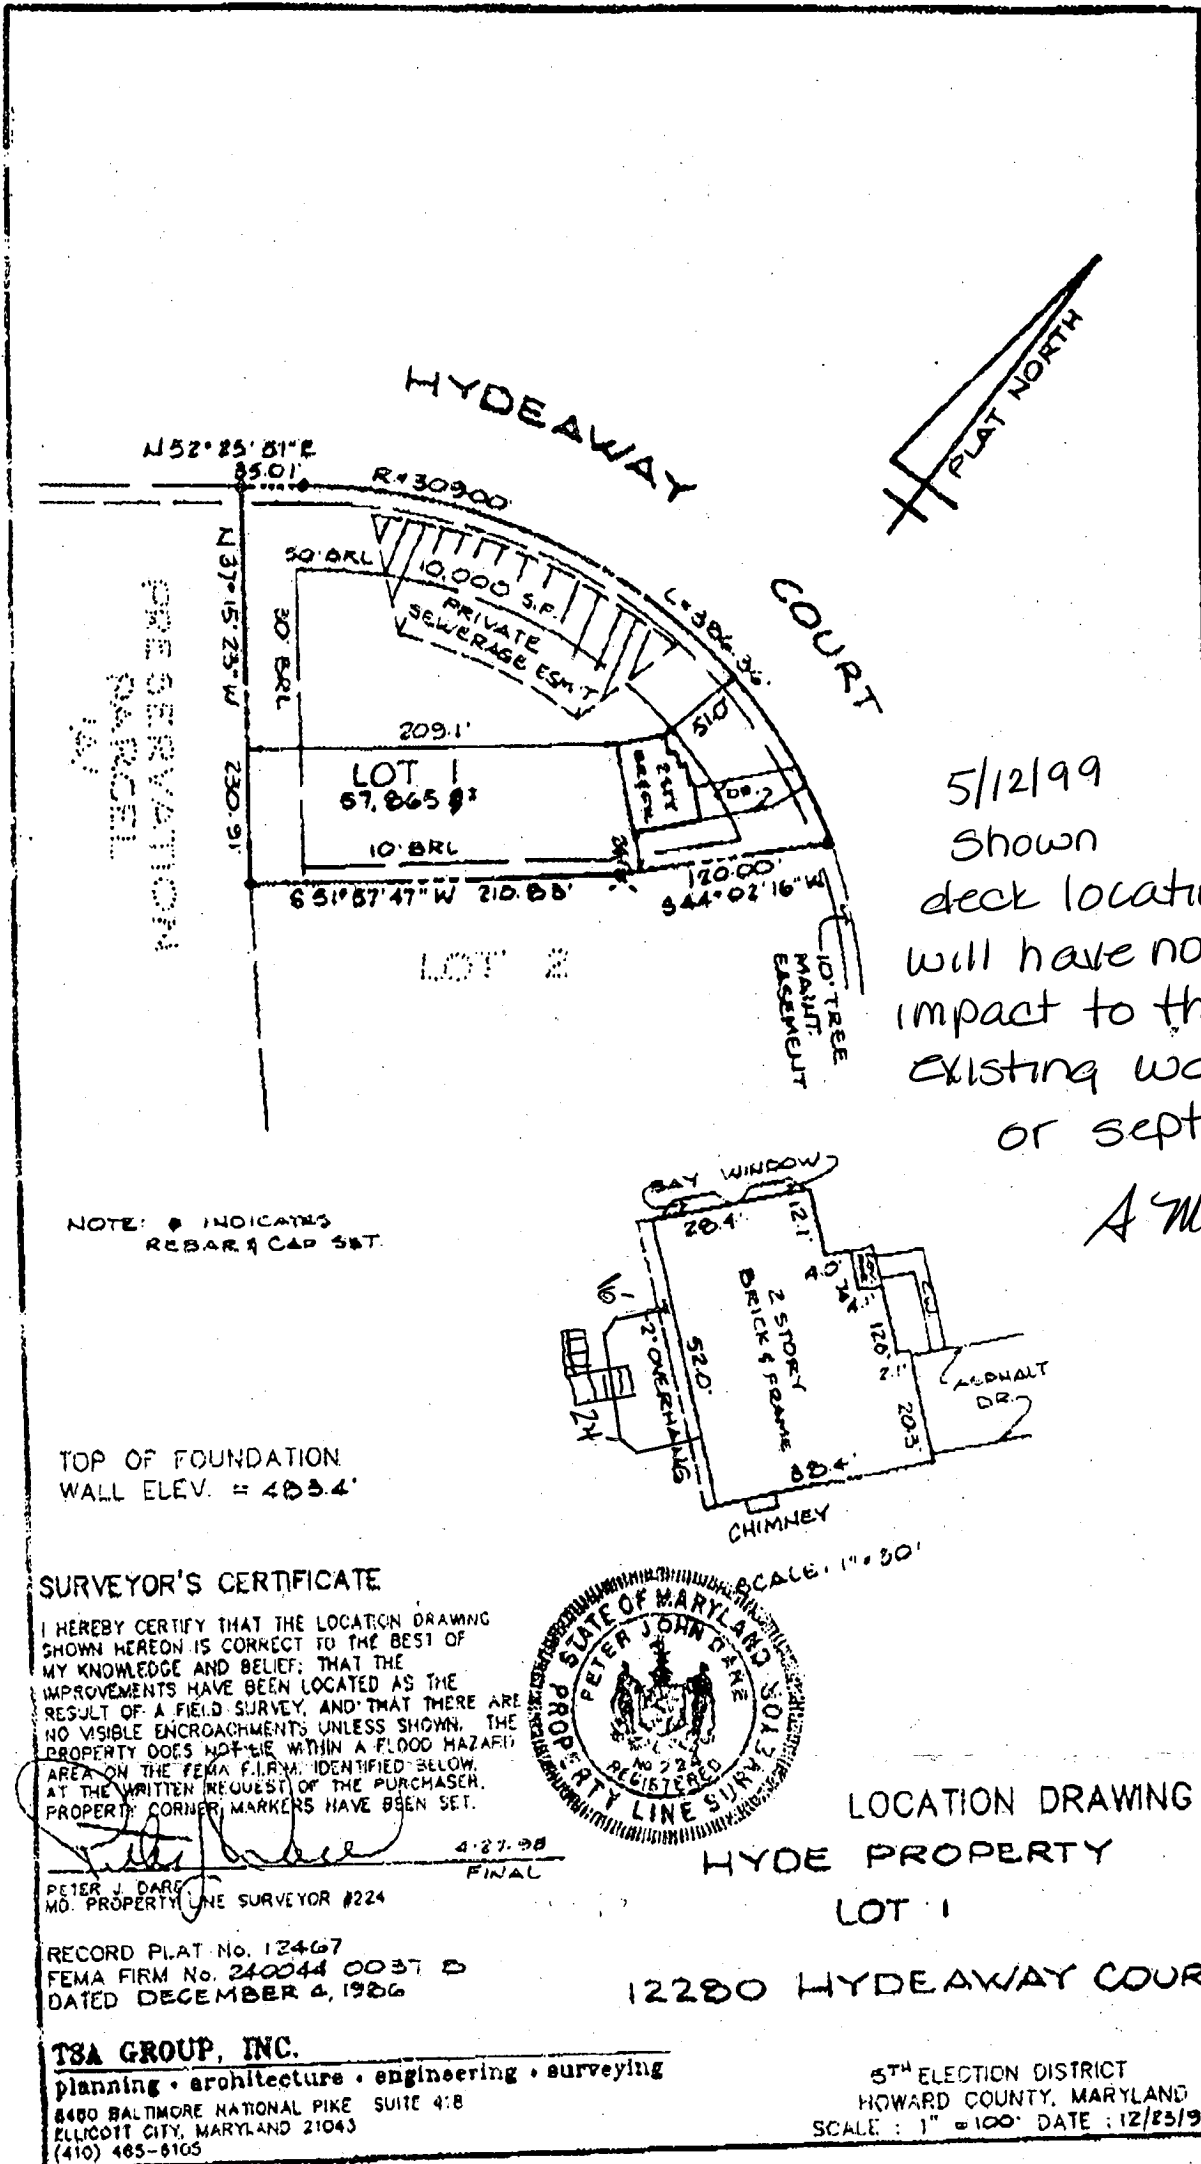 HYDEAWAY
COURT
PLAT NORTH
N 52° 25' 51" E
85.01'
R=309.00'
L=386.36'
N 37° 15' 23" W 230.91'
50' BRL
30' BRL
10,000 S.F.
PRIVATE
SEWERAGE ESM'T
51.0'
209.1'
LOT 1
57,865
2 STY
DR.
10' BRL
S 51° 57' 47" W 210.88'
120.00'
S 44° 02' 16" W
PRESERVATION
PARCEL
'A'
LOT 2
10' TREE
MAINT.
EASEMENT
5/12/99
Shown
deck locati
will have no
impact to th
existing
or sept
NOTE: INDICATES
REBAR & CAP SET.
BAY WINDOW
28.4'
12.1'
4.0'
2 STORY
BRICK & FRAME
16'
2' OVERHANG
52.0'
24
2.1'
20.3'
ASPHALT
DR.
38.4'
CHIMNEY
SCALE: 1"=30'
TOP OF FOUNDATION
WALL ELEV. = 483.4'
SURVEYOR'S CERTIFICATE
I HEREBY CERTIFY THAT THE LOCATION DRAWING
SHOWN HEREON IS CORRECT TO THE BEST OF
MY KNOWLEDGE AND BELIEF; THAT THE
IMPROVEMENTS HAVE BEEN LOCATED AS THE
RESULT OF A FIELD SURVEY, AND THAT THERE ARE
NO VISIBLE ENCROACHMENTS UNLESS SHOWN. THE
PROPERTY DOES NOT LIE WITHIN A FLOOD HAZARD
AREA ON THE FEMA F.I.R.M. IDENTIFIED BELOW.
AT THE WRITTEN REQUEST OF THE PURCHASER,
PROPERTY CORNER MARKERS HAVE BEEN SET.
4-27-98
FINAL
PETER J. DARE
MD. PROPERTY LINE SURVEYOR #224
STATE OF MARYLAND
PETER JOHN DARE
No 224
REGISTERED
PROPERTY LINE SURVEYOR
RECORD PLAT No. 12467
FEMA FIRM No. 240044 0037 B
DATED DECEMBER 4, 1986
TSA GROUP, INC.
planning • architecture • engineering • surveying
8480 BALTIMORE NATIONAL PIKE SUITE 418
ELLICOTT CITY, MARYLAND 21043
(410) 465-6105
LOCATION DRAWING
HYDE PROPERTY
LOT 1
12280 HYDEAWAY COUR
5TH ELECTION DISTRICT
HOWARD COUNTY, MARYLAND
SCALE : 1" = 100' DATE : 12/23/9